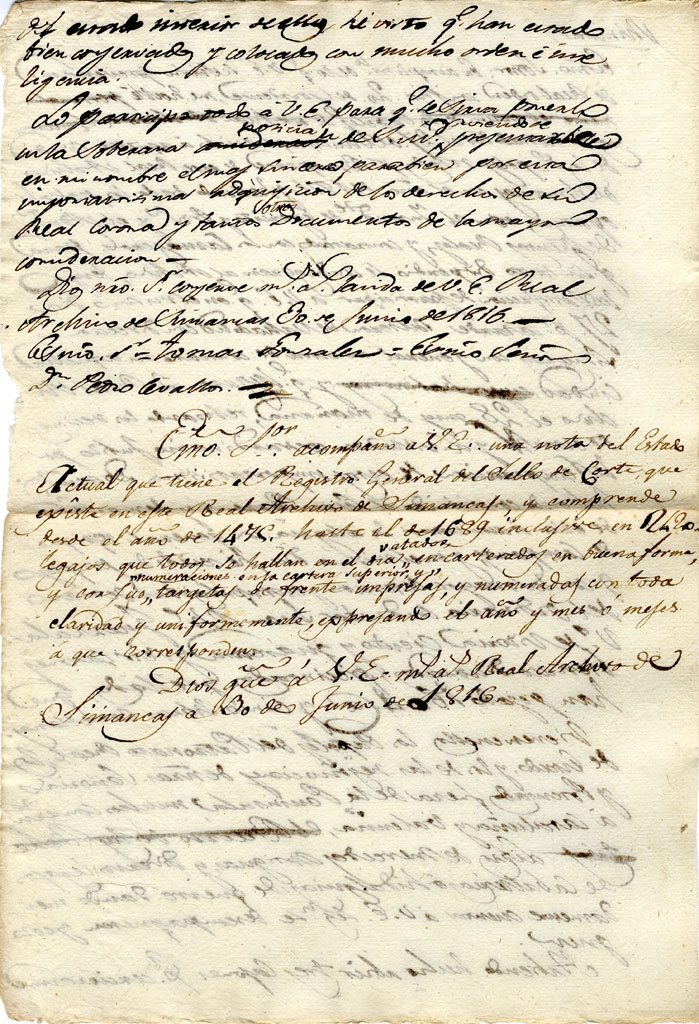 del estado interior de ellos he visto q.e han estado
bien conservados y colocados con mucho orden é inte
ligencia.
Lo participo todo á V. E. para q.e se sirva ponerlo
en la Soberana noticia de S. M. presentandole
en mi nombre el mas sincero parabien por esta
importantisima adquisicion de los derechos de su
Real Corona y tantos otros Documentos de la mayor
consideracion —
Dios nro. S.r conserve m.s a.s la vida de V. E. Real
Archivo de Simancas 30 de Junio de 1816. —
Exmo. S.r = Tomas Gonzalez = Exmo Señor
D.n Pedro Cevallos. =
Exmo. S.or acompaño a V. E. una nota del Estado
Actual que tiene el Registro General del Sello de Corte, que
existe en este Real Archivo de Simancas, y comprende
desde el año de 1475. hasta el de 1689 inclusive, en
legajos que todos se hallan en el dia atados, encarterados en buena forma,
y con sus numeraciones en la cartera superior, y targetas de frente impresas, y numeradas con toda
claridad y uniformemente, expresando el año y mes ó meses
á que corresponden.
Dios gu.e á V. E. m.s a.s Real Archivo de
Simancas a 30 de Junio de 1816